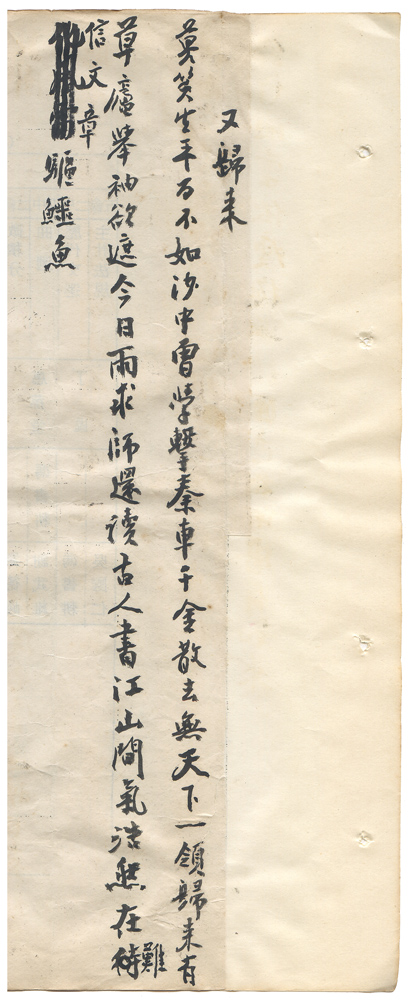 又歸来
莫笑生平百不如沙中曾學擊秦車千金散去無天下一領歸来有
草廬舉袖欲遮今日雨求師還讀古人書江山間氣浩然在待難
信文章
驅鱷魚